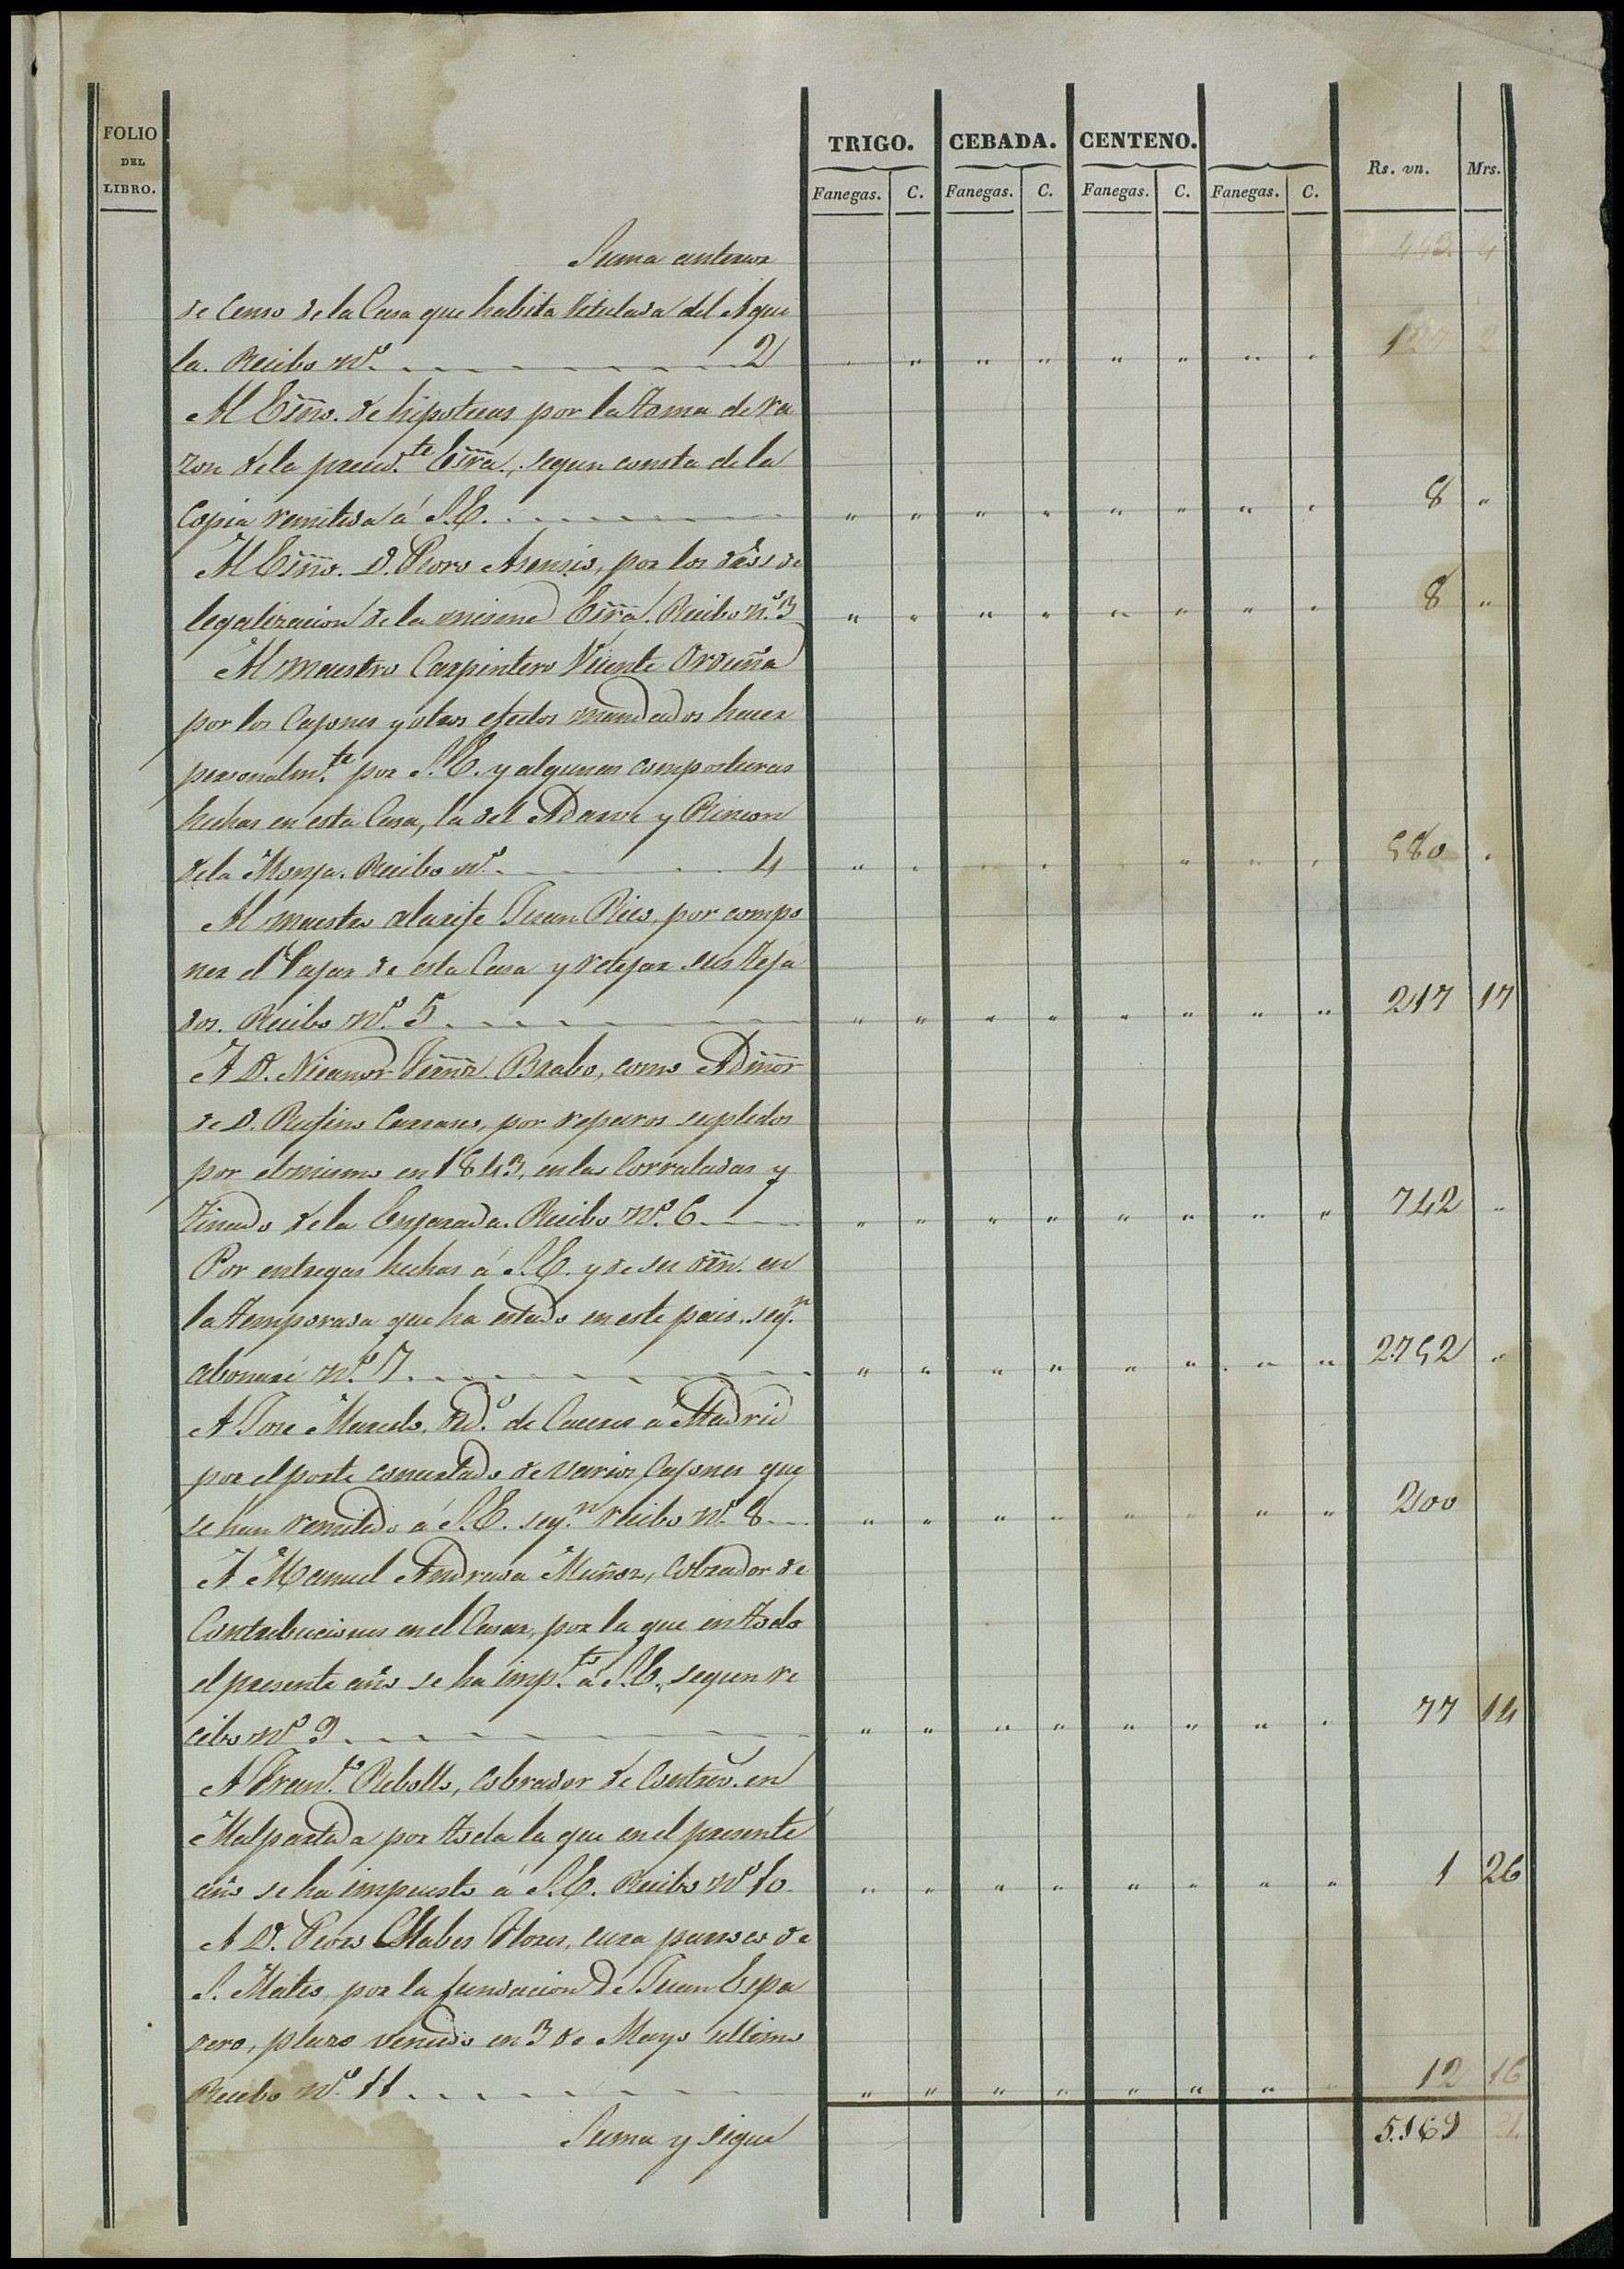 FOLIO
DEL
LIBRO.
TRIGO. CEBADA. CENTENO.
Fanegas. C. Fanegas. C. Fanegas. C. Fanegas. C. Rs. vn. Mrs.
Suma anterior 4
de Censo de la Casa que habita titulada del Agui
la. Recibo nº. 2 " " " " " "
Al Esñno. de hipotecas por la toma de ra
zon de la preced.te Esrra, segun consta de la
Copia remitida á S.E. " " " " " " " " 8 "
Al Esñno. D. Pedro Asensio, por los dros de
legalizacion de la misma Esrra. Recibo nº. 3 " " " " " " " " 8 "
Al maestro Carpintero Vicente Orduña
por los Cajones y otros efectos mandados hacer
personalm.te por S.E. y algunas composturas
hechas en esta Casa, la del Adarve y Rincon
de la Monja. Recibo nº. 4 " " " " " " " " 580 "
Al maestro alarife Juan Rico, por compo
ner el Pajar de esta Casa y retejar sus teja
dos. Recibo nº. 5 " " " " " " " " 217 17
A D. Nicanor Fernz. Brabo, como Admor
de D. Rufino Carrasco, por reparos suplidos
por el mismo en 1843, en las Corraladas y
tinado de la Enjarada. Recibo nº. 6. " " " " " " " " 742 "
Por entregas hechas á S.E. y de su orn. en
la temporada que ha estado en este pais, seg.n
abonaré nº. 7. " " " " " " " " 2.752 "
A Jose Marcelo, ord.º de Caceres á Madrid
por el porte concertado de varios Cajones que
se han remitido á S.E. seg.n recibo nº. 8 " " " " " " " " 200
A Manuel Andrada Muñoz, Cobrador de
Contribuciones en el Casar, por la que en todo
el presente año se ha imp.to á S.E., segun re
cibo nº. 9 " " " " " " " " 77 14
A Fran.co Rebollo, cobrador de Contrives. en
Malpartida por toda la que en el presente
año se ha impuesto á S.E. Recibo nº. 10. " " " " " " " " 1 26
A D. Pedro Flores, cura parroco de
S. Mateo, por la fundacion de Juan Espa
dero, plazo vencido en 3 de Mayo ultimo
Recibo nº. 11 " " " " " " " " 12 16
Suma y sigue 5.169